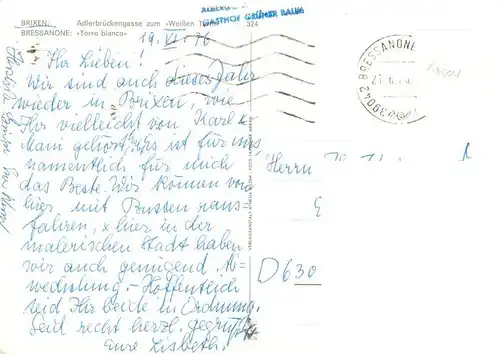 BRIXEN: Adlerbrückengasse zum »Weißen Turm«
BRESSANONE: »Torre bianca«
324
GASTHOF GRÜNER BAUM
19. VI. 76
39042 BRESSANONE
Ihr Lieben!
Wir sind auch dieses Jahr
wieder in Brixen, wie
Ihr vielleicht von Karl +
gehört, es ist für uns,
namentlich für mich
das Beste. Wir können von
hier mit Bussen raus-
fahren, + hier in der
malerischen Stadt haben
wir auch genügend Ab-
wechslung. Hoffentlich
seid Ihr beide in Ordnung.
Seid recht herzl. gegrüßt
Eure Lisbeth.
Herzliche Grüße
Herrn
D 630